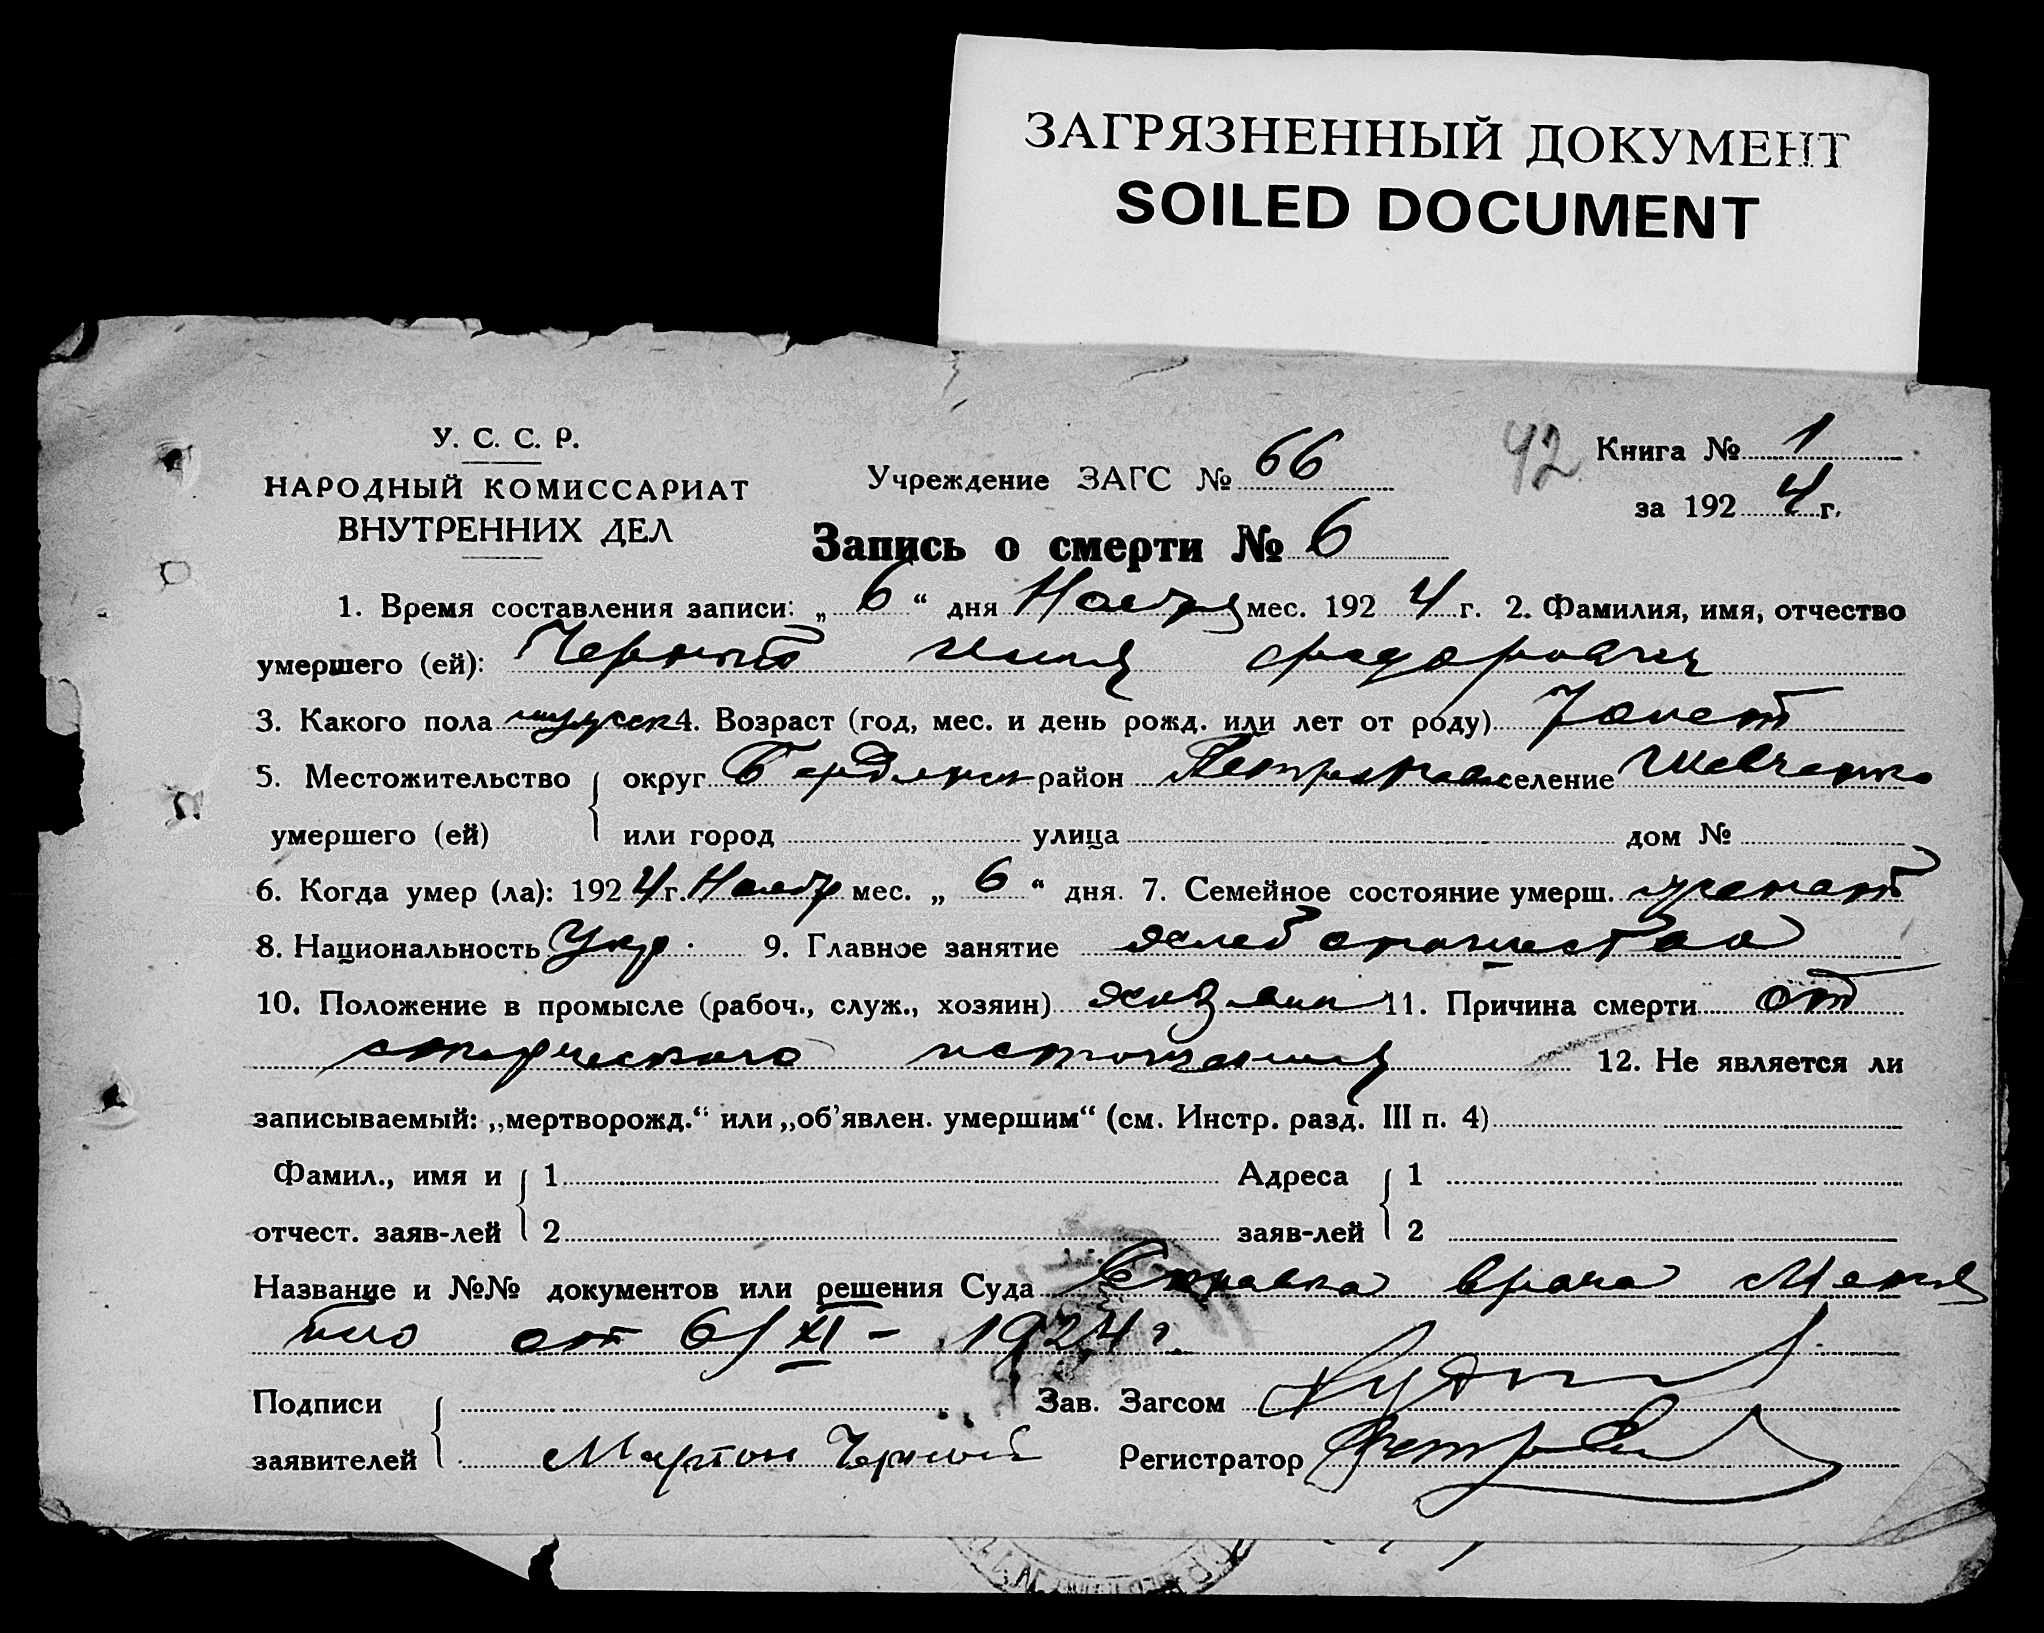 ЗАГРЯЗНЕННЫЙ ДОКУМЕНТ
SOILED DOCUMENT
У. С. С. Р.
НАРОДНЫЙ КОМИССАРИАТ
ВНУТРЕННИХ ДЕЛ
Учреждение ЗАГС № 66
42
Книга № 1
за 192 4 г.
Запись о смерти № 6
1. Время составления записи: „ 6 “ дня Ноября мес. 192 4 г. 2. Фамилия, имя, отчество
умершего (ей): Черный Илия Федорович
3. Какого пола мужск 4. Возраст (год, мес. и день рожд. или лет от роду) 70 лет
5. Местожительство округ Бердянск район селение Шевченко
умершего (ей) или город улица дом №
6. Когда умер (ла): 192 4 г. Ноябр мес. „ 6 “ дня. 7. Семейное состояние умерш. женат
8. Национальность Укр. 9. Главное занятие хлебопашество
10. Положение в промысле (рабоч., служ., хозяин) хозяин 11. Причина смерти от
старческого истощения 12. Не является ли
записываемый: „мертворожд.“ или „об’явлен. умершим“ (см. Инстр. разд. III п. 4)
Фамил., имя и 1 Адреса 1
отчест. заяв-лей 2 заяв-лей 2
Название и №№ документов или решения Суда Справка врача
от 6/XI - 1924 г.
Подписи Зав. Загсом
заявителей Мартон Черный Регистратор